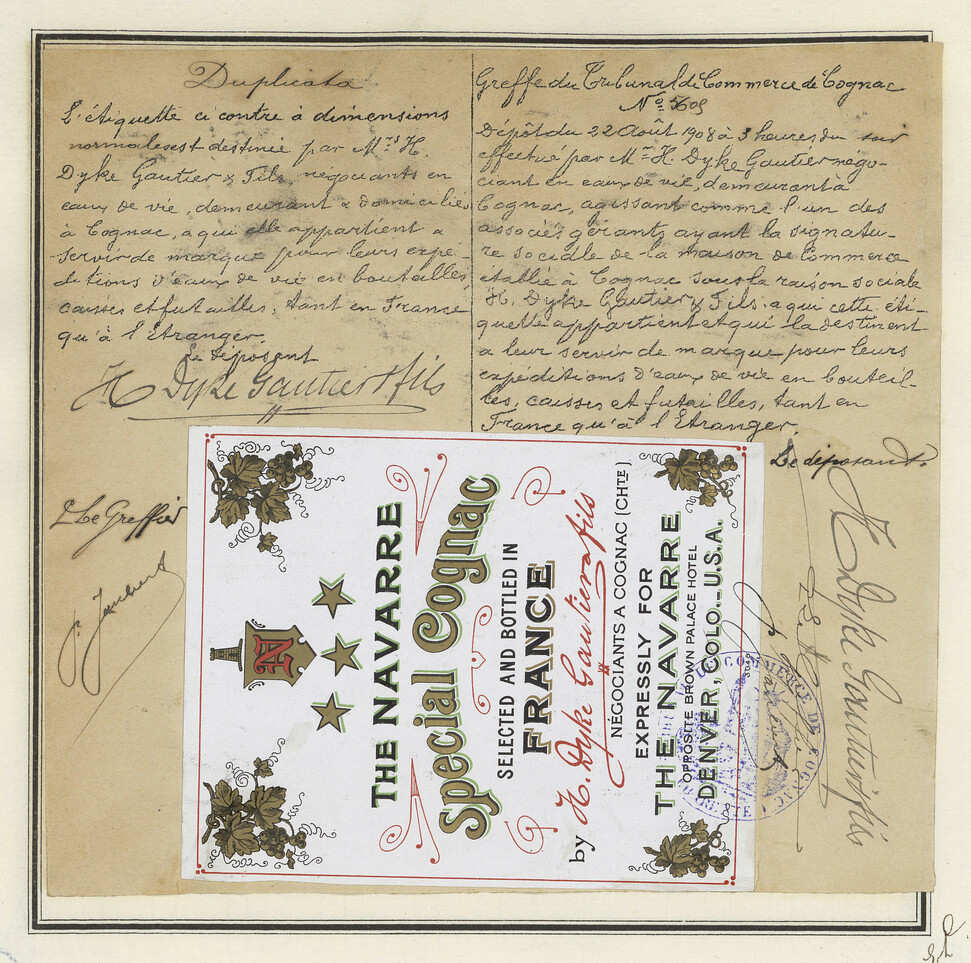 Duplicata
L'étiquette ci contre à dimensions
normales est destinée par Mrs H.
Dyke Gautier & Fils, négociants en
eaux de vie, demeurant & domiciliés
à Cognac, à qui elle appartient à
servir de marque pour leurs expé-
ditions d'eaux de vie en bouteilles,
caisses et futailles, tant en France
qu'à l'Etranger.
Le déposant
H Dyke Gautier & fils
Le Greffier
Greffe du Tribunal de Commerce de Cognac
No 5609
Dépôt du 22 Août 1908 à 3 heures du soir
effectué par Mr H. Dyke Gautier négo-
ciant en eaux de vie, demeurant à
Cognac, agissant comme l'un des
associés gérants, ayant la signatu-
re sociale de la maison de Commerce
établie à Cognac sous la raison sociale
H. Dyke Gautier & Fils. à qui cette éti-
quette appartient et qui la destinent
à leur servir de marque pour leurs
expéditions d'eaux de vie en bouteil-
les, caisses et futailles, tant en
France qu'à l'Etranger.
Le déposant.
H Dyke Gautier & fils
N
THE NAVARRE
Special Cognac
SELECTED AND BOTTLED IN
FRANCE
by H. Dyke Gautier & fils
NÉGOCIANTS A COGNAC (CHTE)
EXPRESSLY FOR
THE NAVARRE
OPPOSITE BROWN PALACE HOTEL
DENVER, COLO._U.S.A.
COMMERCE DE COGNAC